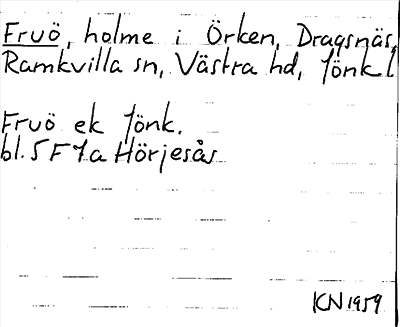 Fruö, holme i Örken, Dragsnäs,
Ramkvilla sn, Västra hd, Jönk l
Fruö ek Jönk.
bl. 5 F 7a Hörjesås
KN 1959